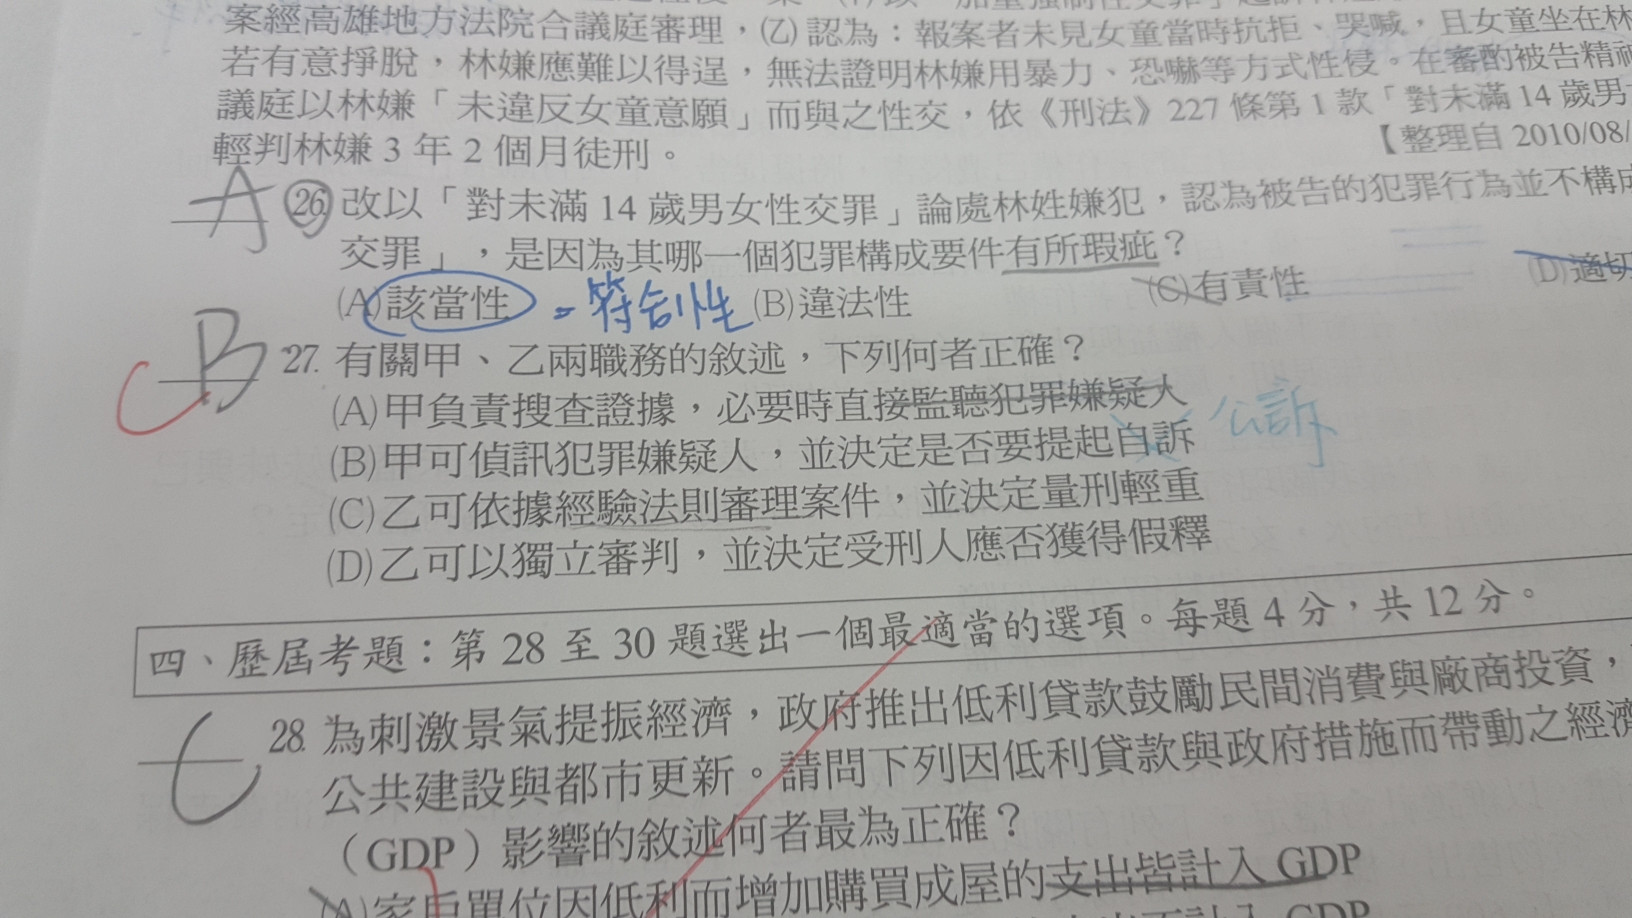 案經高雄地方法院合議庭審理，(乙)認為：報案者未見女童當時抗拒、哭喊，且女童坐在林
若有意掙脫，林嫌應難以得逞，無法證明林嫌用暴力、恐嚇等方式性侵。在審酌被告精神
議庭以林嫌「未違反女童意願」而與之性交，依《刑法》227條第1款「對未滿14歲男
輕判林嫌3年2個月徒刑。
【整理自 2010/08/
A 26 改以「對未滿14歲男女性交罪」論處林姓嫌犯，認為被告的犯罪行為並不構成
交罪」，是因為其哪一個犯罪構成要件有所瑕疵？
(A)該當性 = 符合性 (B)違法性 (C)有責性 (D)適切
B 27. 有關甲、乙兩職務的敘述，下列何者正確？
C
(A)甲負責搜查證據，必要時直接監聽犯罪嫌疑人
(B)甲可偵訊犯罪嫌疑人，並決定是否要提起自訴 公訴
(C)乙可依據經驗法則審理案件，並決定量刑輕重
(D)乙可以獨立審判，並決定受刑人應否獲得假釋
四、歷屆考題：第 28 至 30 題選出一個最適當的選項。每題 4 分，共 12 分。
28. 為刺激景氣提振經濟，政府推出低利貸款鼓勵民間消費與廠商投資，
公共建設與都市更新。請問下列因低利貸款與政府措施而帶動之經濟
（GDP）影響的敘述何者最為正確？
(A)家戶單位因低利而增加購買成屋的支出皆計入 GDP
計入 GDP